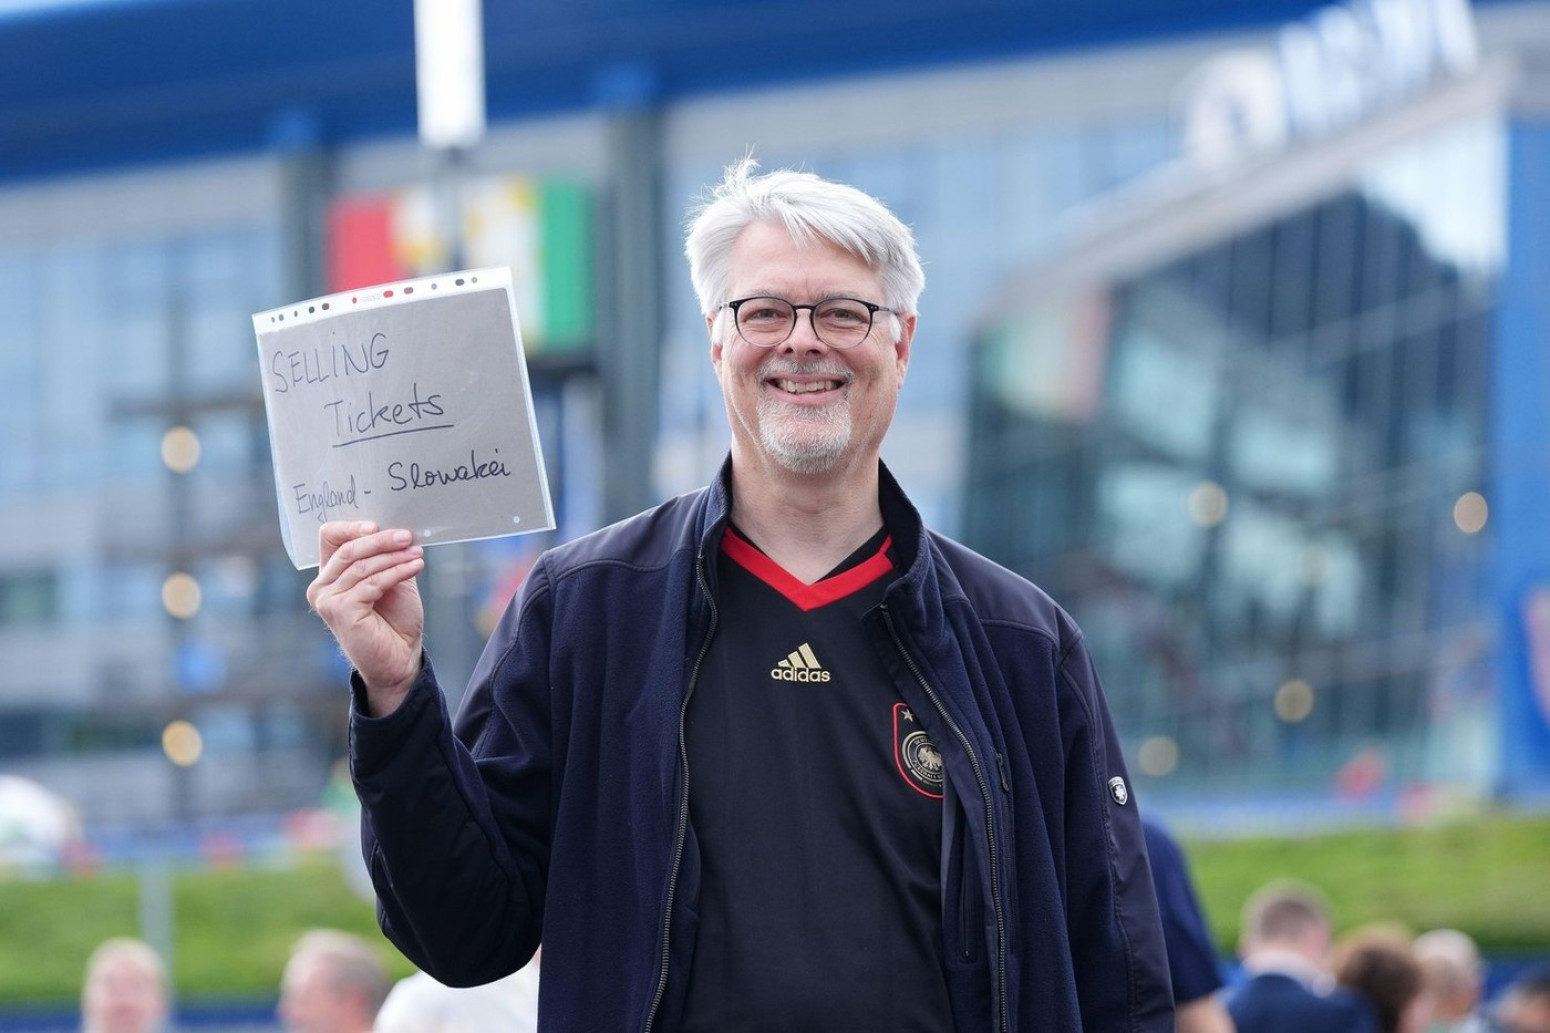 SELLING
Tickets
England - Slowakei
adidas